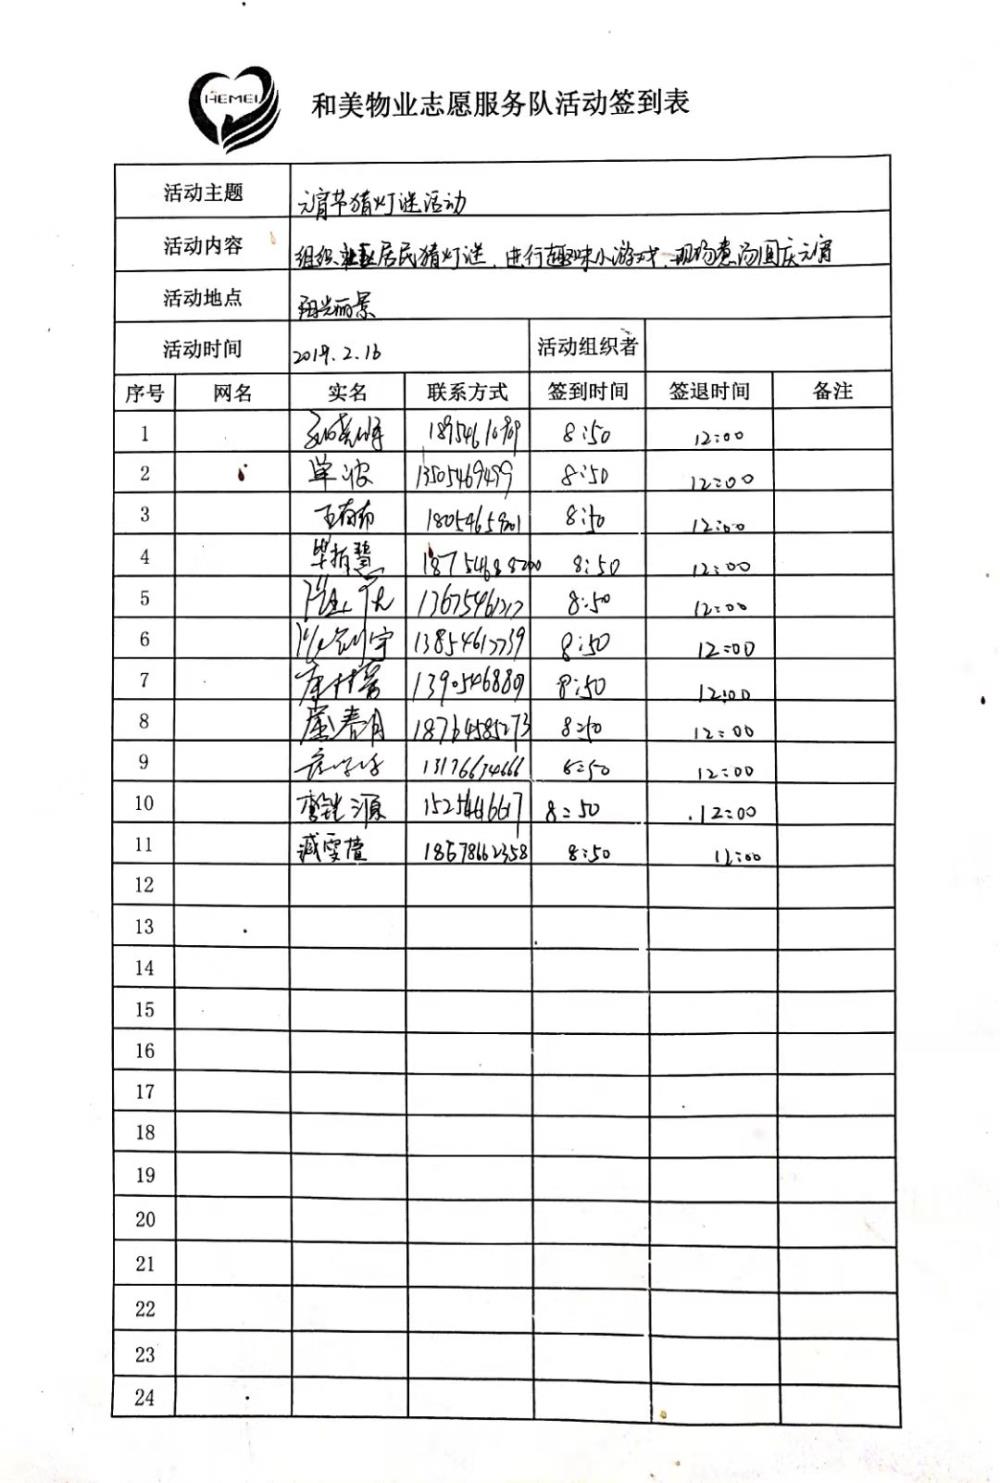 HEMEI
和美物业志愿服务队活动签到表
活动主题 元宵节猜灯谜活动
活动内容 组织社区居民猜灯谜,进行趣味小游戏,现场煮汤圆庆元宵
活动地点 阳光丽景
活动时间 2019.2.16 活动组织者
序号 网名 实名 联系方式 签到时间 签退时间 备注
1 8:50 12:00
2 单波 13505469499 8:50 12:00
3 18054659201 8:50 12:00
4 18754688200 8:50 12:00
5 8:50 12:00
6 13854612739 8:50 12:00
7 13905468809 8:50 12:00
8 春月 18764585273 8:50 12:00
9 13176674666 8:50 12:00
10 李铠源 8:50 12:00
11 臧雯萱 18678662358 8:50 12:00
12
13
14
15
16
17
18
19
20
21
22
23
24